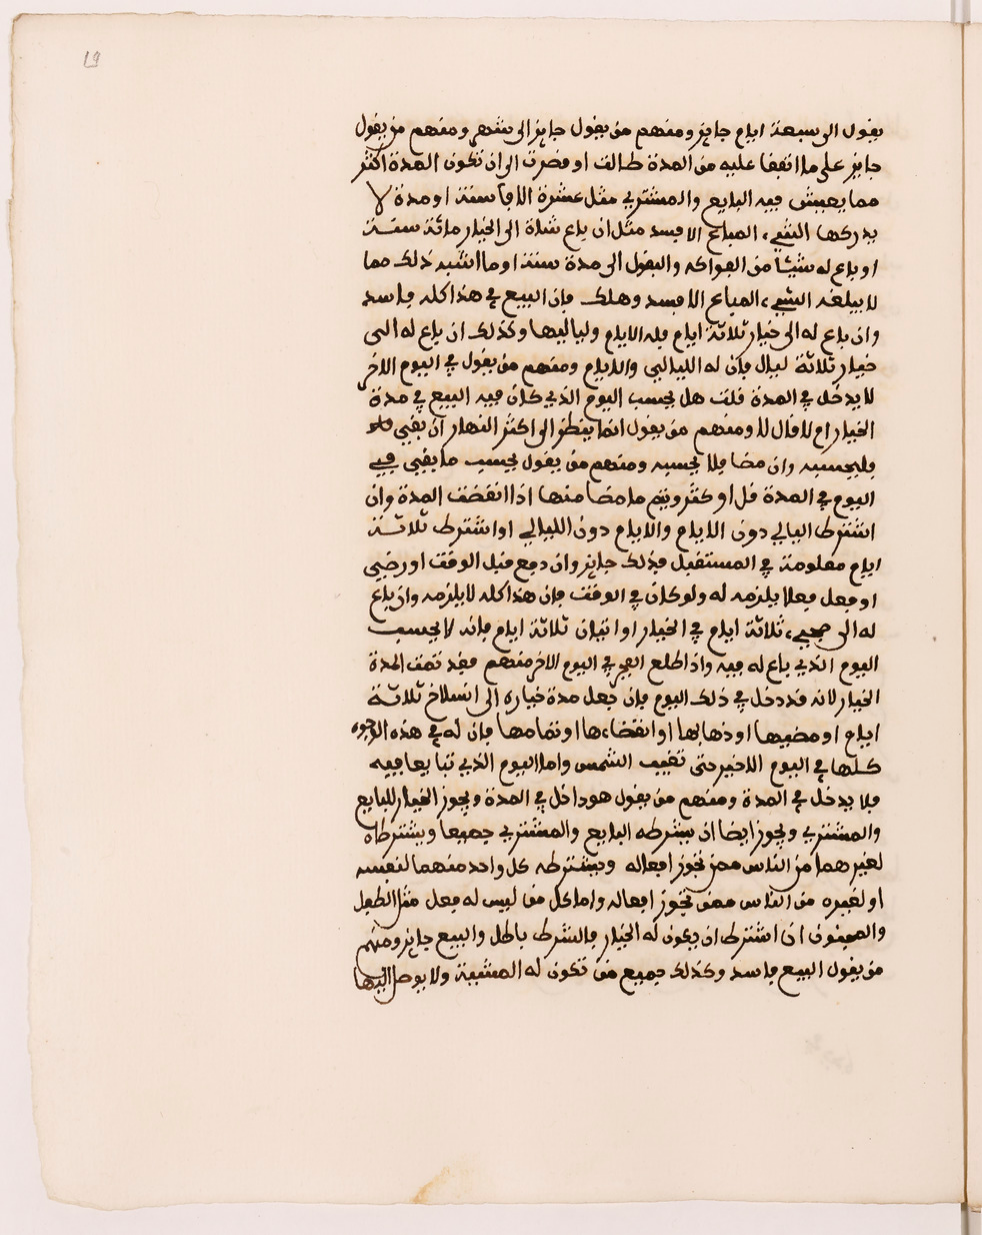 19
يقول الى سبعة ايام جايز ومنهم من يقول جايز الى شهر ومنهم من يقول
جايز على ما اتفقا عليه من المدة طالت او قصرت الى ان تكون المدة اكثر
مما يعيش فيه البايع والمشتري مثل عشرة الاف سنة او مدة لا
يدركها الشيء المباع الا فسد مثل ان باع شاة الى الخيار مائة سنة
او باع له شيئا من الفواكه والبقول الى مدة سنة او ما اشبه ذلك مما
لا يبلغه الشيء المباع الا فسد وهلك فان البيع في هذا كله فاسد
وان باع له الى خيار ثلاثة ايام فله الايام ولياليها وكذلك ان باع له الى
خيار ثلاثة ليال فان له الليالي والايام ومنهم من يقول في اليوم الاخر
لا يدخل في المدة قلت هل يحسب اليوم الذي كان فيه البيع في مدة
الخيار ام لا قال لا ومنهم من يقول انما ينظر الى اكثر النهار ان بقي
فليحسبه وان مضا فلا يحسبه ومنهم من يقول يحسب ما بقي في
اليوم في المدة قل او كثر ويتم ما مضا منها اذا انقضت المدة وان
اشترط اليالي دون الايام والايام دون الليالي او اشترط ثلاثة
ايام معلومة في المستقبل فذلك جايز وان دفع قبل الوقت او رضي
او فعل فعلا يلزمه له ولو كان في الوقت فان هذا كله لا يلزمه وان باع
له الى مجيء ثلاثة ايام في الخيار او اتيان ثلاثة ايام فانه لا يحسب
اليوم الذي باع له فيه واذا طلع الفجر في اليوم الاخر منهم فقد تمت المدة
الخيار لانه قد دخل في ذلك اليوم فان جعل مدة خياره الى انسلاخ ثلاثة
ايام او مضيها او ذهابها او انقضاءها او تمامها فان له في هذه الوجوه
كلها في اليوم الاخير حتى تغيب الشمس واما اليوم الذي تبايعا فيه
فلا يدخل في المدة ومنهم من يقول هو داخل في المدة ويجوز الخيار للبايع
والمشتري ويجوز ايضا ان يشترطه البايع والمشتري جميعا ويشترطاه
لغيرهما من الناس ممن تجوز افعاله ويشترطه كل واحد منهما لنفسه
او لغيره من الناس ممن تجوز افعاله واما كل من ليس له فعل مثل الطفل
والمجنون ان اشترط ان يكون له الخيار فالشرط باطل والبيع جايز ومنهم
من يقول البيع فاسد وكذلك جميع من تكون له المشيئة ولا يوصل اليها